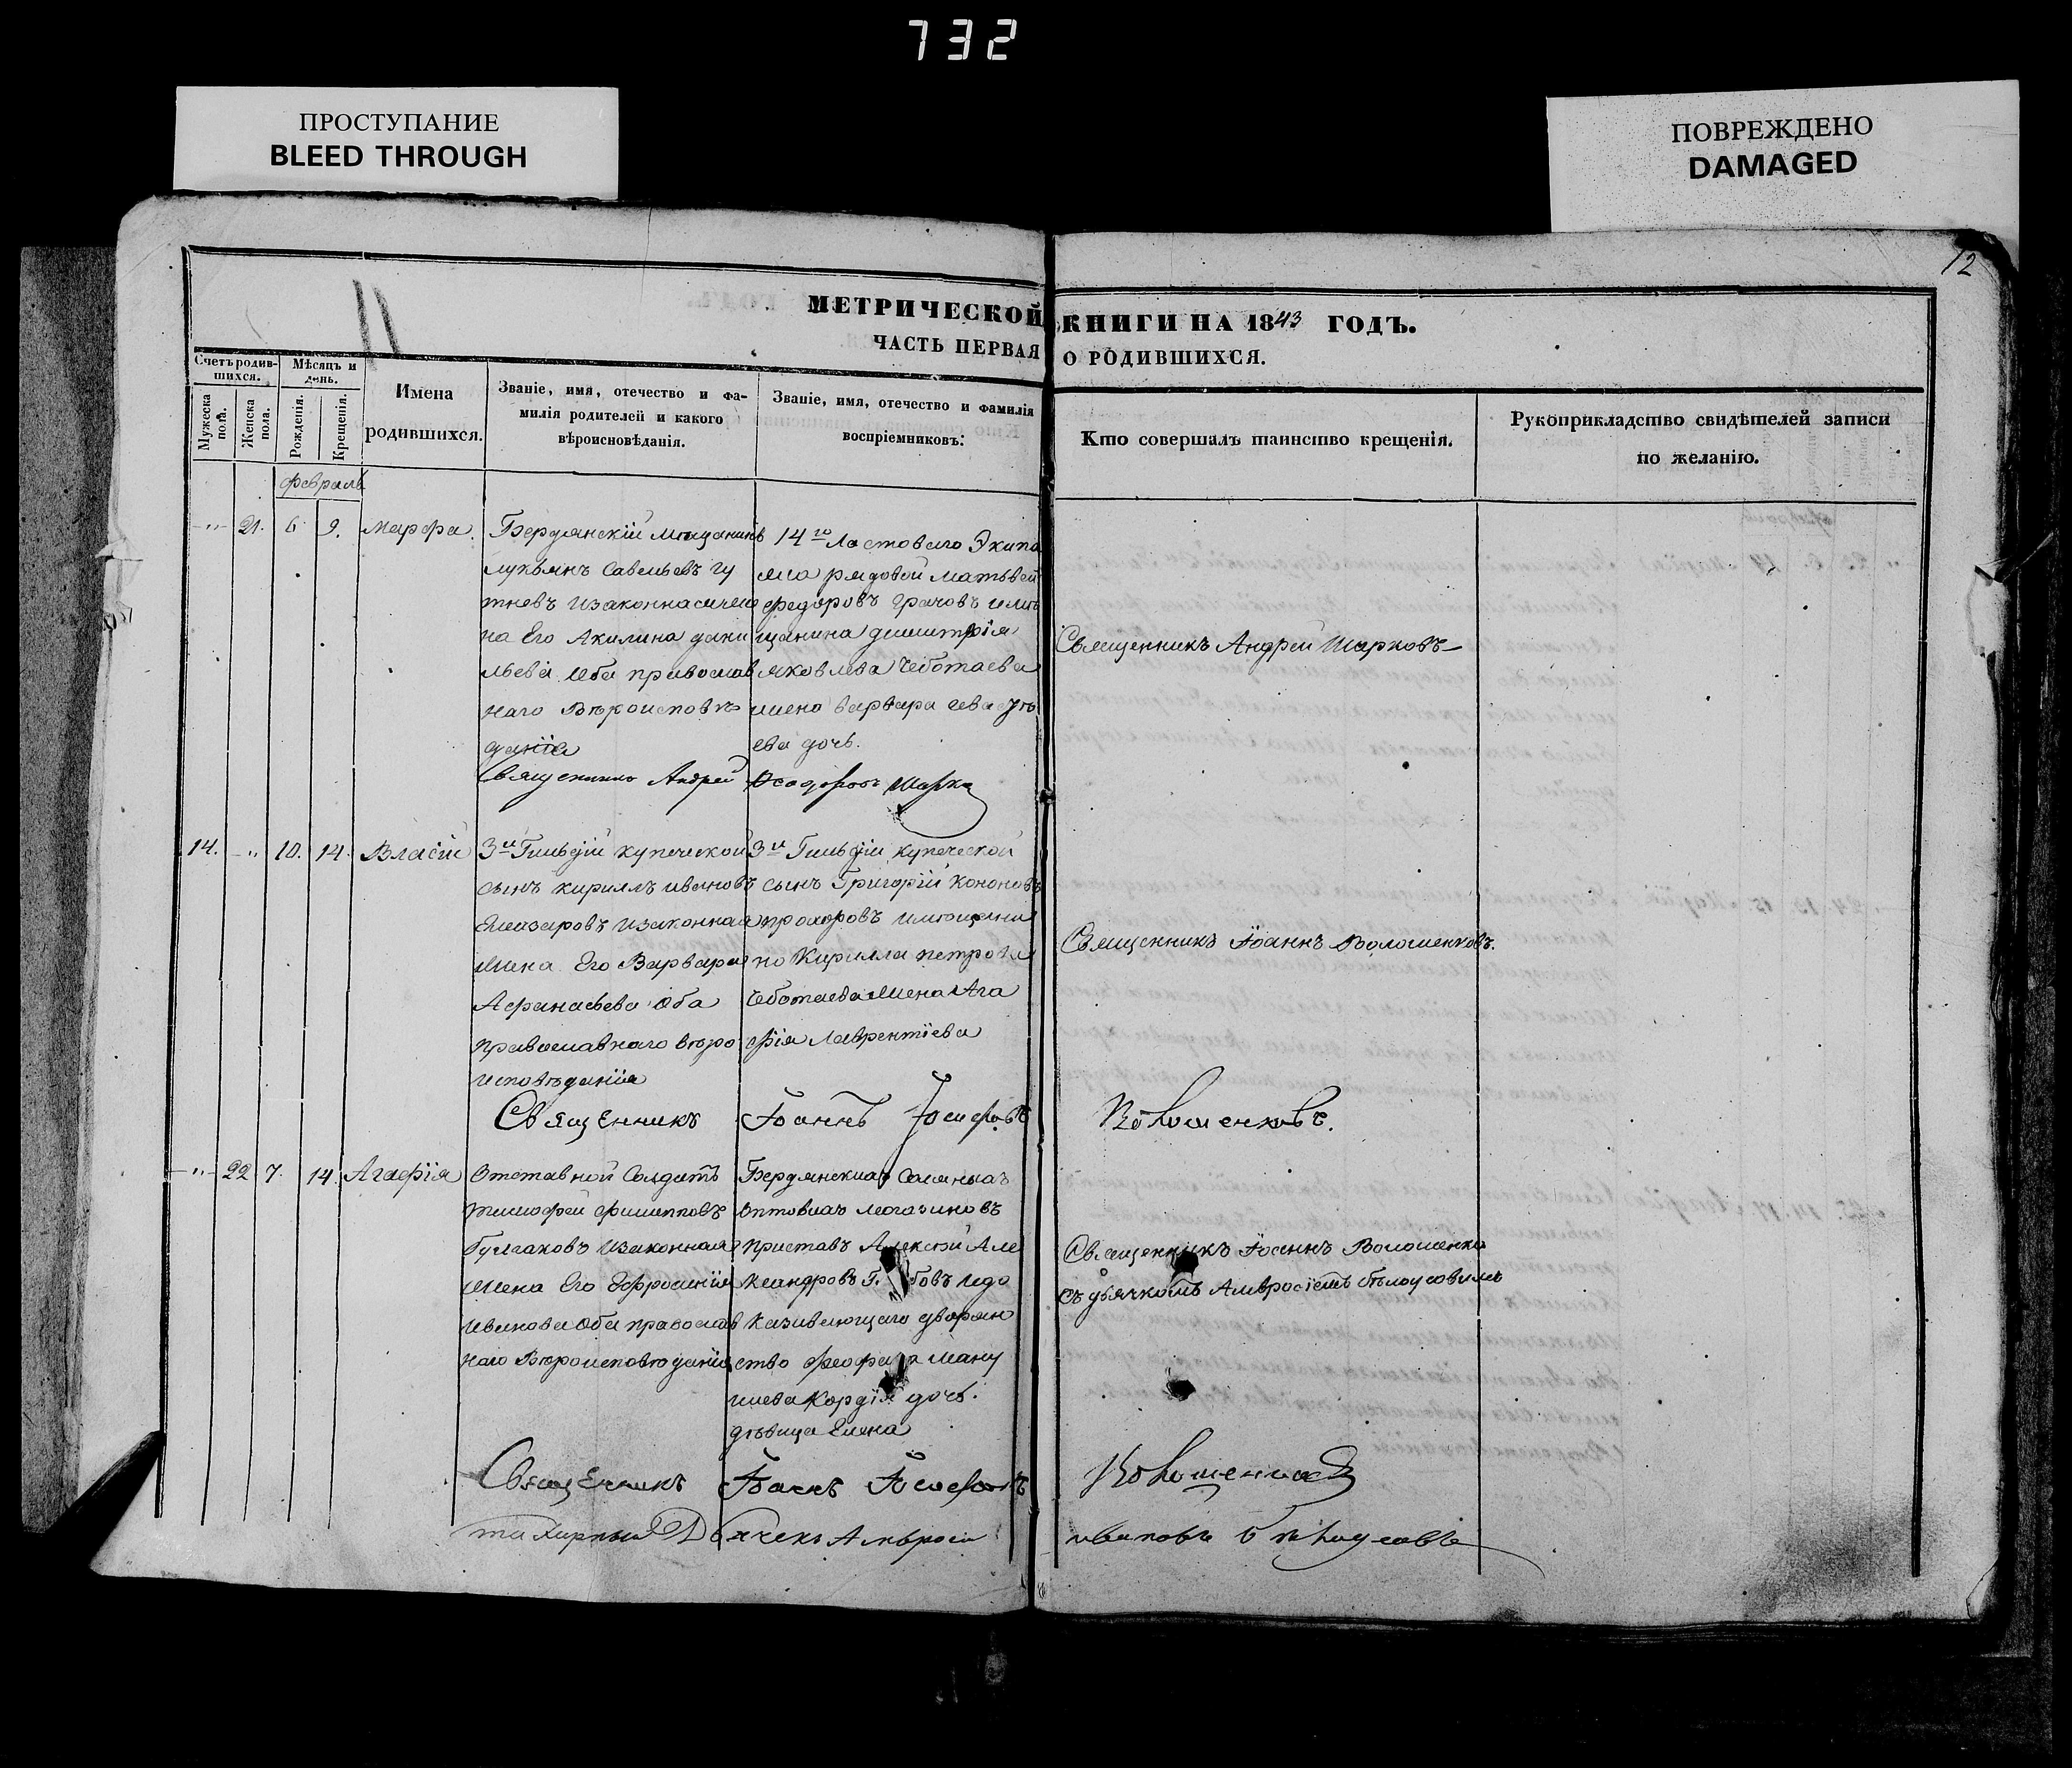 732
ПРОСТУПАНИЕ
BLEED THROUGH
ПОВРЕЖДЕНО
DAMAGED
12
11
МЕТРИЧЕСКОЙ КНИГИ НА 1843 ГОДЪ.
ЧАСТЬ ПЕРВАЯ О РОДИВШИХСЯ.
Счетъ родив-
шихся.
Мѣсяцъ и
день.
Мужеска
пола.
Женска
пола.
Рожденія.
Крещенія.
Имена
родившихся.
Званіе, имя, отечество и фа-
милія родителей и какого
вѣроисновѣданія.
Званіе, имя, отечество и фамилія
воспріемниковъ:
Кто совершалъ таинство крещенія.
Рукоприкладство свидѣтелей записи
по желанію.
Февраль
-"- 21. 6. 9. Марфа.
Бердянскій мѣщанинъ
Лукьянъ Савельевъ Гу
тневъ и законная жена
на Его Акилина Дани
льева Оба православ
наго Вѣроисповѣ
данія
14го Ластоваго Экипа
жа рядовой Матьвей
Федоровъ Грачовъ и мѣ
щанина Димитрія
Яковлева Чеботаева
жена Варвара
ева дочь.
Священникъ Андрей Шарковъ
Священникъ Андрей Феодоровъ Шарко
14. -" 10. 14. Власій
3й Гильдіи купеческой
сынъ Кириллъ Ивановъ
Елизаровъ и законная
жена Его Варвара
Афанасьева Оба
Православнаго вѣро
исповѣданія
3й Гильдіи купеческой
сынъ Григорій Кононовъ
Прохоровъ и мѣщани
на Кирилла Петрова
Чеботаева жена Ага
фія Лаврентіева
Священникъ Іоаннъ Волошенковъ.
Священникъ Іоаннъ Іосифовъ Волошенковъ.
-"- 22 7. 14. Агафія
Отставной Солдатъ
Тимофей Филипповъ
Булгаковъ и законная
жена Его Ефросинія
Иванова Оба православ
наго Вѣроисповѣданія
Бердянскихъ Соляныхъ
Оптовыхъ Магазиновъ
Приставъ Алексѣй Але
ксандровъ и до
казивающаго дворян
ство Ману
илева Кордія дочь.
дѣвица Елена
Священникъ Іоаннъ Волошенко
съ дьячкомъ Амвросіемъ Бѣлоусовимъ
Священникъ Іоаннъ Іосифовъ Волошенковъ
Дьячекъ Амвросій Ивановъ Бѣлоусовъ